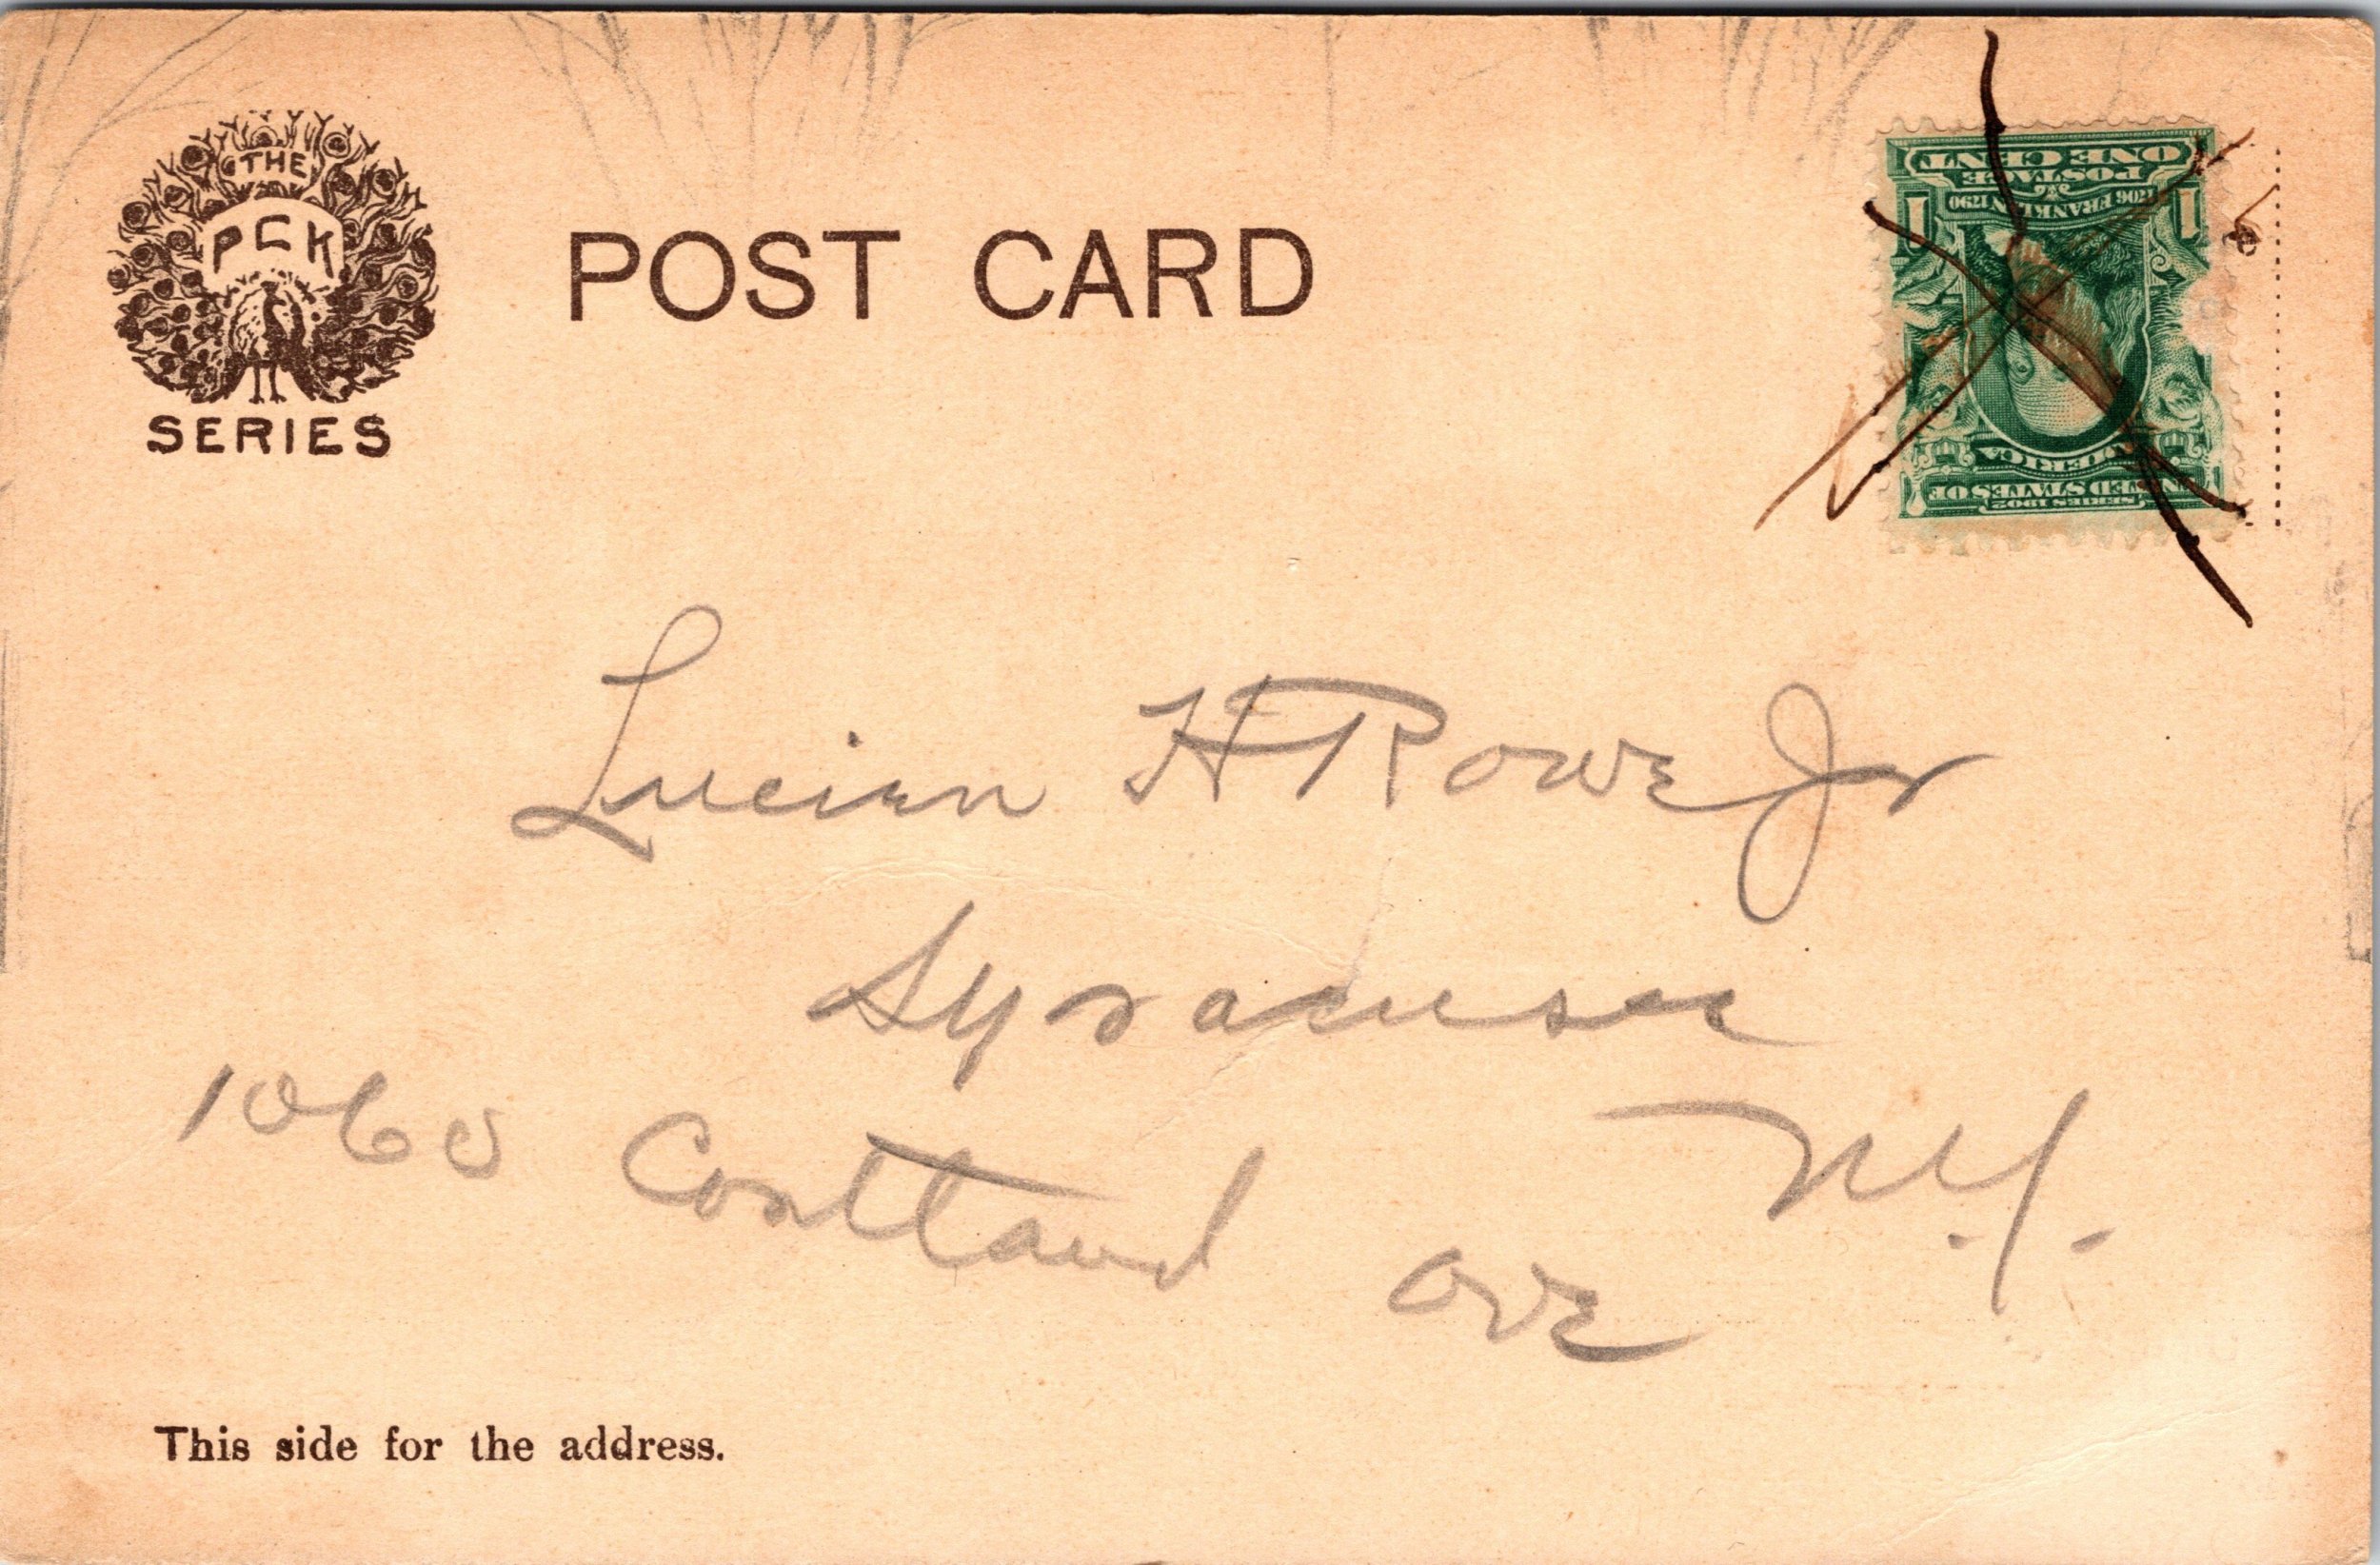 THE
PCK
SERIES
POST CARD
ONE CENT
POSTAGE
1706 FRANKLIN 1790
1 1
UNITED STATES OF
AMERICA
SERIES 1902
Lucien H Rowe Jr
Syracuse
N.Y.
1060 Cortland ave
This side for the address.